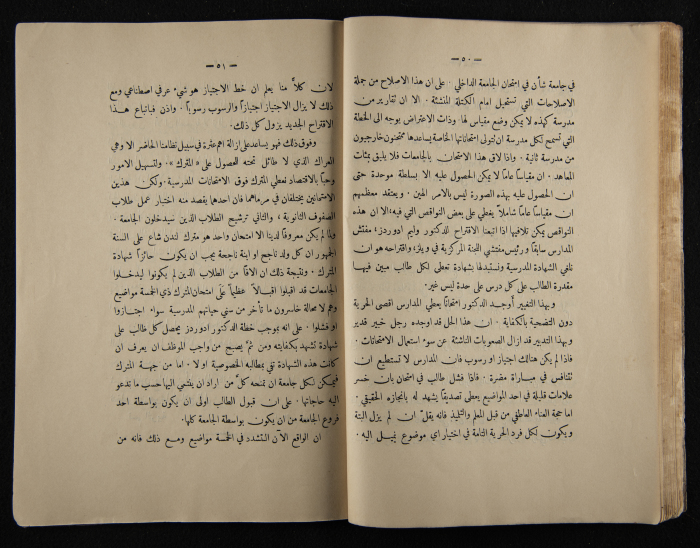 — ٥٠ —
في جامعة شأن في امتحان الجامعة الداخلي . على ان هذا الاصلاح من جملة
الاصلاحات التي تستحيل امام الكتلة المنشئة . الا ان تقارير من
مدرسة كهذه لا يمكن وضع مقياس لها وذات الاعتراض يوجه الى الخطة
التي تسمح لكل مدرسة ان تتولى امتحاناتها الخاصة يساعدها ممتحنون خارجيون
من مدرسة ثانية . واذا لاق هذا الامتحان بالجامعات فلا يليق بمئات
المعاهد . ان مقياساً عامًا لا يمكن الحصول عليه الا بسلطة موحدة حتى
ان الحصول عليه بهذه الصورة ليس بالامر الهين . ويعتقد معظمهم
ان مقياساً عاماً شاملاً يغطي على بعض النواقص التي فيه الا ان هذه
النواقص يمكن تلافيها اذا اتبعنا الاقتراح الدكتور وليم ادوردز، مفتش
المدارس سابقاً ورئيس مفتشي اللجنة المركزية في ويلز، واقتراحه هو ان
نلغي الشهادة المدرسية ونستبدلها بشهادة تعطى لكل طالب مبين فيهـا
مقدرة الطالب على كل درس على حدة ليس غير .
وبهذا التغيير أوجد الدكتور امتحاناً يعطي المدارس اقصى الحرية
دون التضحية بالكفاية . ان هذا الحل قد اوجده رجل خبير قدير
وبهذا التدبير قد ازال الصعوبات الناشئة عن سوء استعمال الامتحانات .
فاذا لم يكن هنالك اجتياز او رسوب فان المدارس لا تستطيع ان
تتنافس في مباراة مضرة . فاذا فشل طالب في امتحان بان خسر
علامات قليلة في احد المواضيع يعطى تصديقاً يشهد له بانجازه الحقيقي .
اما حجة العناء العاطفي من قبل المعلم والتلميذ فانه يقل ان لم يزل البتة
ويكون لكل فرد الحرية التامة في اختيار اي موضوع يميل اليه .
— ٥١ —
لان كلاً منا يعلم ان خط الاجتياز هو شيء عرفي اصطناعي ومع
ذلك لا يزال الاجتياز اجتيازاً والرسوب رسوباً . واذن فباتباع هذا
الاقتراح الجديد يزول كل ذلك .
وفوق ذلك فهو يساعد على ازالة اهم عثرة في سبيل نظامنا الحاضر الا وهي
العراك الذي لا طائل تحته للحصول على « المترك » . ولتسهيل الامور
وحباً بالاقتصاد نعطي المترك فوق الامتحانات المدرسية ولكن هذين
الامتحانين يختلفان في مرماهما فان احدها يقصد منه اختبار عمل طلاب
الصفوف الثانوية ، والثاني ترشيح الطلاب الذين سيدخلون الجامعة .
ولما لم يكن معروفاً لدينا الا امتحان واحد هو مترك لندن شاع على السنة
الجمهور ان كل ولد ناجح او ابنة ناجحة يجب ان يكون حائزاً شهادة
المترك . ونتيجة ذلك ان الآفا من الطلاب الذين لم يكونوا ليدخلوا
الجامعات قد اقبلوا اقبالاً عظيماً على امتحان المترك ذي الخمسة مواضيع
وهم لا محالة خاسرون ما تأخر من سني حياتهم المدرسية سواء اجتـازوا
او فشلوا . على انه بموجب خطة الدكتور ادوردز يحصل كل طالب على
شهادة تشهد بكفايته ومن ثم يصبح من واجب الموظف ان يعرف ان
كانت هذه الشهادة تفي بمطالبه الخصوصية او لا . اما من جهة المترك
فيمكن لكل جامعة ان تمنحه كلاً من اراد ان ينتمي اليها حسب ما تدعو
اليه حاجاتها . على ان قبول الطالب اولى ان يكون بواسطة احد
فروع الجامعة من ان يكون بواسطة الجامعة كلها .
ان الواقع الآن التشدد في الخمسة مواضيع ومـع ذلك فانه من